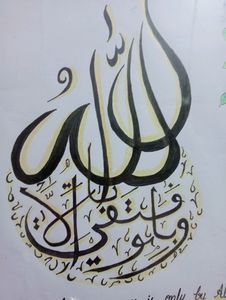 وما توفيقي إلا بالله
is only by Al